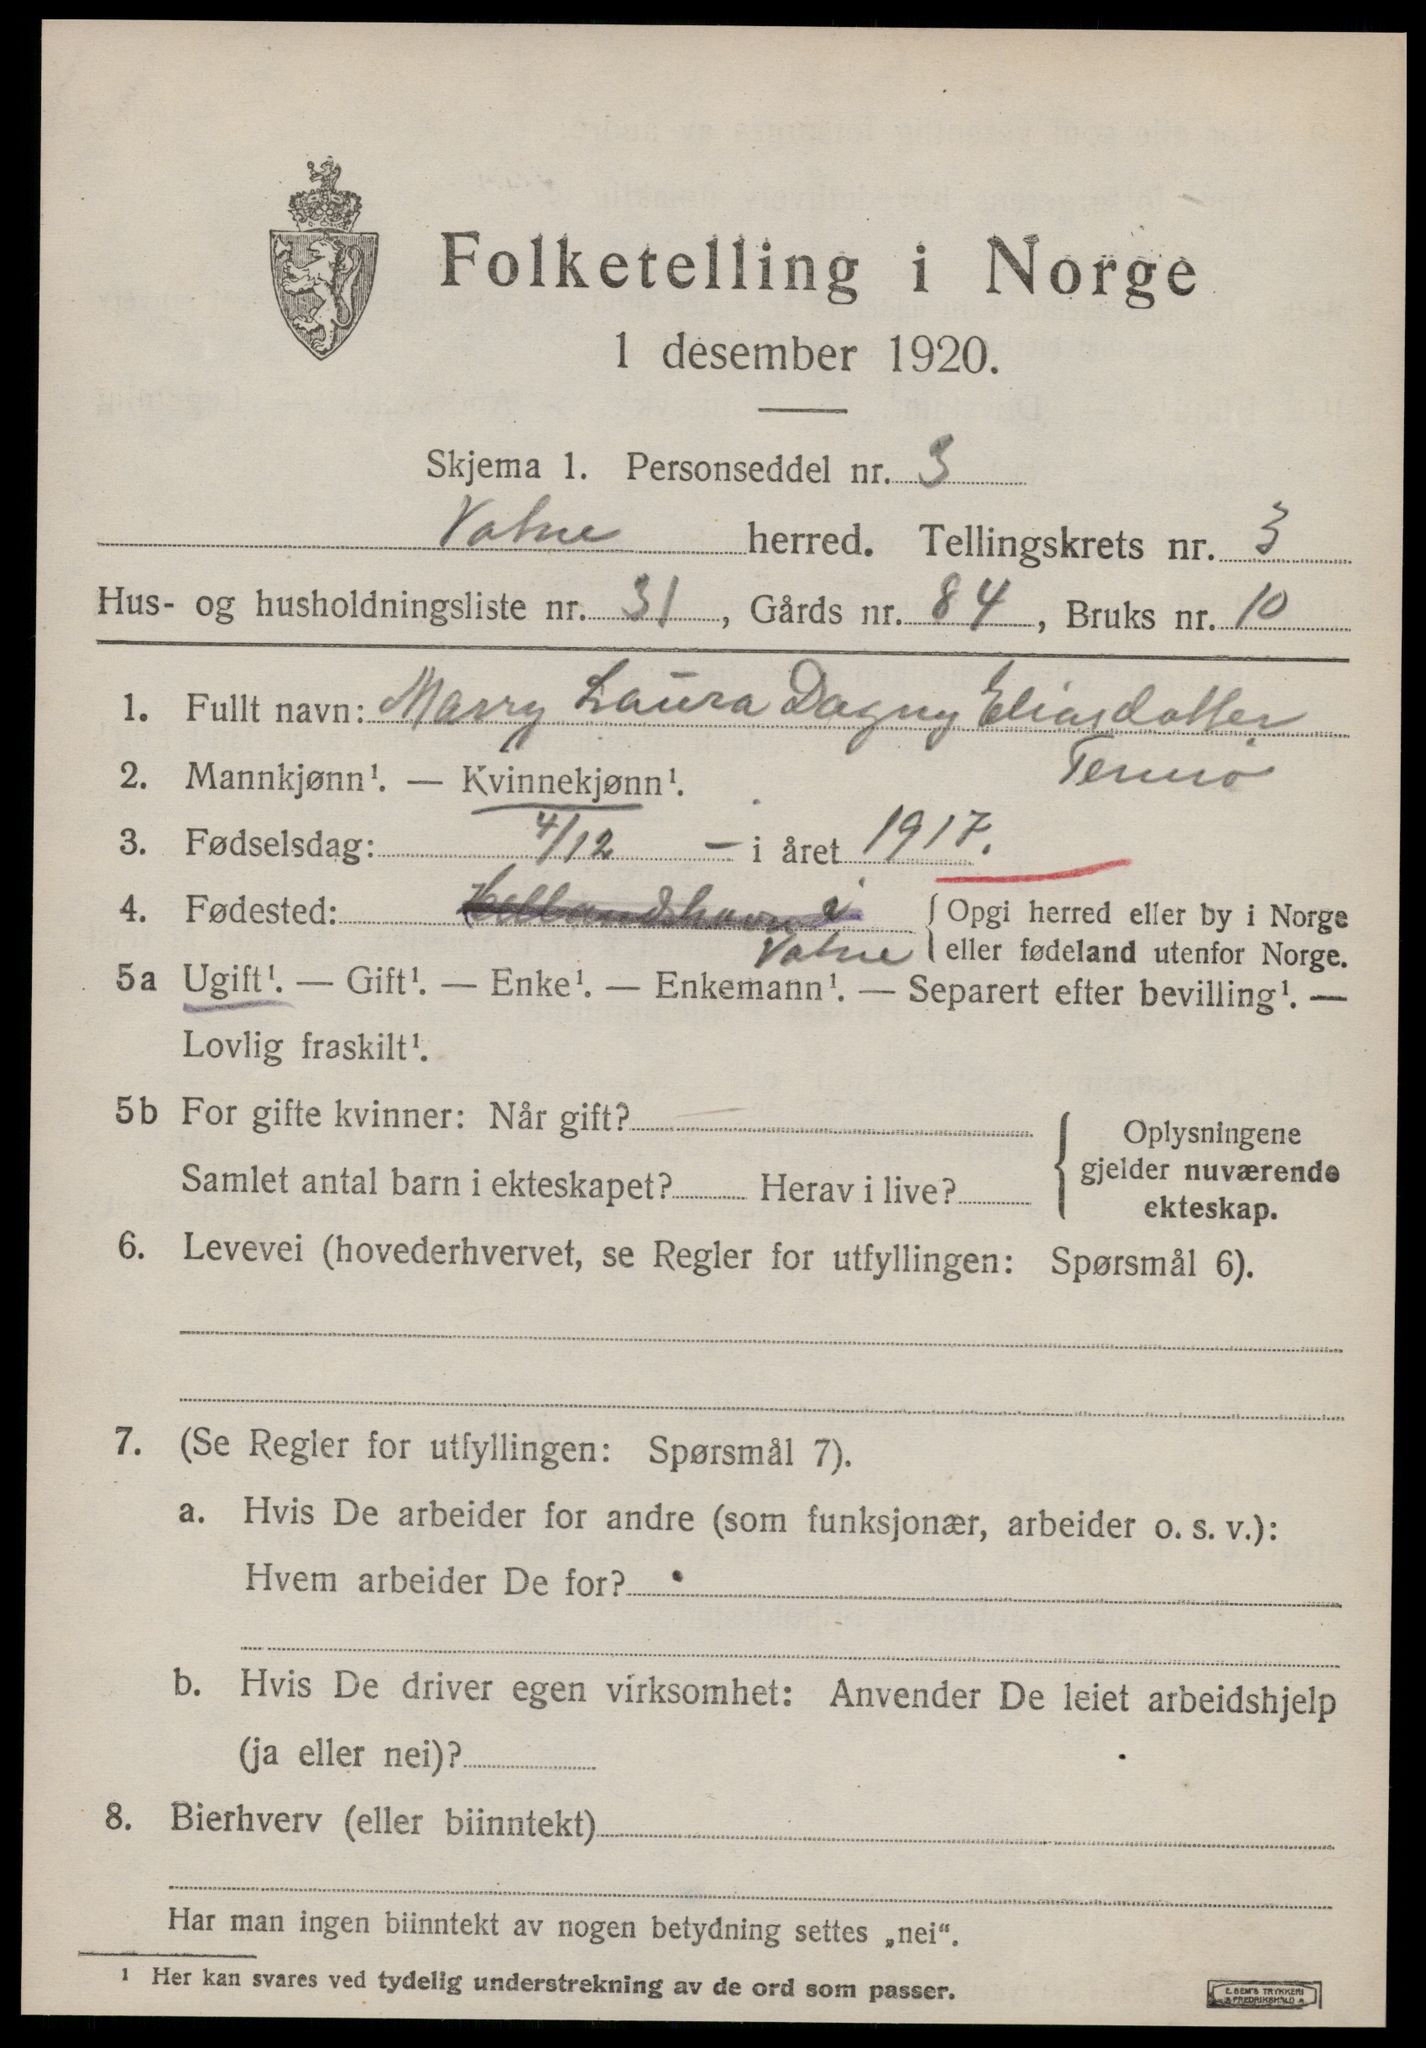 Folketelling i Norge
1 desember 1920.
Skjema 1. Personseddel nr. 3
Vatne herred. Tellingskrets nr. 3
Hus- og husholdningsliste nr. 31, Gårds nr. 84, Bruks nr. 10
1. Fullt navn: Marry Laura Dagny Eliasdatter
2. Mannkjønn¹. — Kvinnekjønn¹.
3. Fødselsdag: 4/12 – i året 1917.
4. Fødested: i { Opgi herred eller by i Norge
Vatne eller fødeland utenfor Norge.
5a Ugift¹. — Gift¹. — Enke¹. — Enkemann¹. — Separert efter bevilling¹. —
Lovlig fraskilt¹.
5b For gifte kvinner: Når gift? { Oplysningene
gjelder nuværende
Samlet antal barn i ekteskapet? Herav i live?
ekteskap.
6. Levevei (hovederhvervet, se Regler for utfyllingen: Spørsmål 6).
7. (Se Regler for utfyllingen: Spørsmål 7).
a. Hvis De arbeider for andre (som funksjonær, arbeider o. s. v.):
Hvem arbeider De for?
b. Hvis De driver egen virksomhet: Anvender De leiet arbeidshjelp
(ja eller nei)?
8. Bierhverv (eller biinntekt)
Har man ingen biinntekt av nogen betydning settes „nei“.
¹ Her kan svares ved tydelig understrekning av de ord som passer.
E. SEM'S TRYKKERI
FREDRIKSHALD